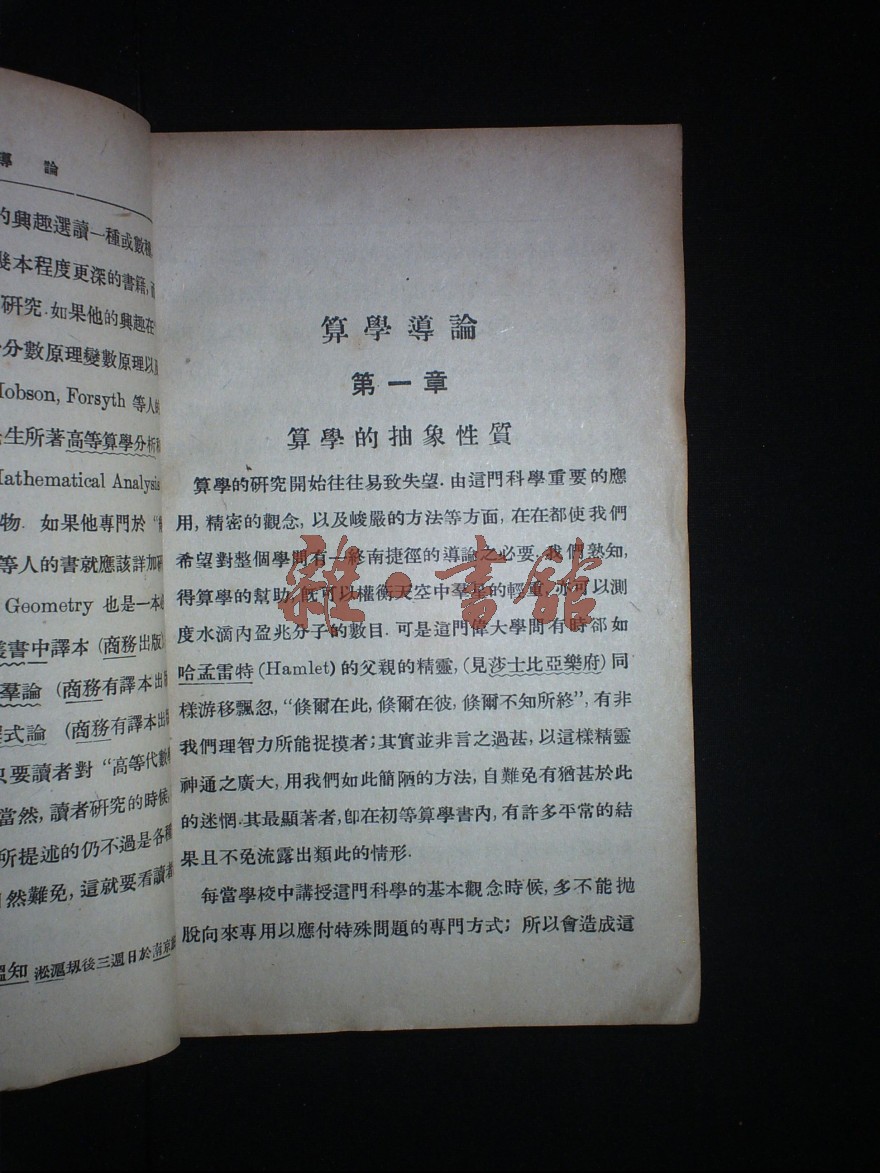 論
的興趣選讀一種或數種
幾本程度更深的書籍,
研究.如果他的興趣在
分數原理變數原理以
Hobson, Forsyth 等人
生所著高等算學分析
Mathematical Analysis
物. 如果他專門於“
等人的書就應該詳加研
Geometry 也是一本
叢書中譯本 (商務出版)
羣論 (商務有譯本出
式論 (商務有譯本出
只要讀者對“高等代數
當然,讀者研究的時候,
所提述的仍不過是各種
自然難免,這就要看讀者
知 淞滬刼後三週日於南京
算學導論
第一章
算學的抽象性質
算學的研究開始往往易致失望.由這門科學重要的應
用,精密的觀念,以及峻嚴的方法等方面,在在都使我們
希望對整個學問有一終南捷徑的導論之必要.我們熟知,
得算學的幫助,旣可以權衡天空中羣星的輕重,亦可以測
度水滴內盈兆分子的數目.可是這門偉大學問有時郤如
哈孟雷特(Hamlet)的父親的精靈,(見莎士比亞樂府)同
樣游移飄忽,“倏爾在此,倏爾在彼,倏爾不知所終”,有非
我們理智力所能捉摸者;其實並非言之過甚,以這樣精靈
神通之廣大,用我們如此簡陋的方法,自難免有猶甚於此
的迷惘.其最顯著者,卽在初等算學書內,有許多平常的結
果且不免流露出類此的情形.
每當學校中講授這門科學的基本觀念時候,多不能拋
脫向來專用以應付特殊問題的專門方式;所以會造成這
雜·書館